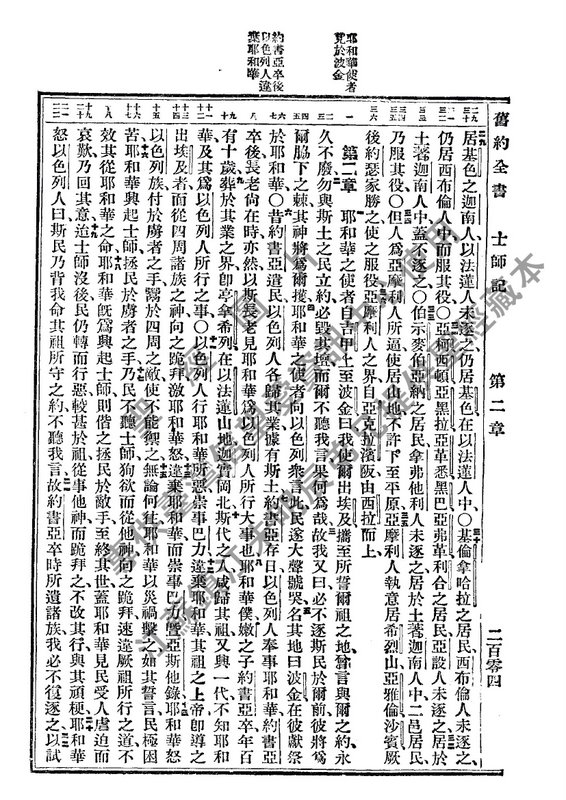 舊約全書 士師記 第二章 二百零四
耶和華使者
見於波金
約書亞卒後
以色列人違
棄耶和華
居基色之迦南人、以法蓮人未逐之、仍居基色、在以法蓮人中○基倫拿哈拉之居民、西布倫人未逐之、
仍居西布倫人中、而服其役○亞柯西頓亞黑拉亞革悉黑巴亞弗革利合之居民、亞設人未逐之、居於
土著迦南人中、蓋不逐之○伯示麥伯亞納之居民、拿弗他利人未逐之、居於土著迦南人中、二邑居民、
乃服其役○但人爲亞摩利人所逼、使居山地、不許下至平原、亞摩利人執意居希烈山亞雅倫沙賓、厥
後約瑟家勝之、使之服役、亞摩利人之界、自亞克拉濱阪、由西拉而上、
第二章 耶和華之使者、自吉甲上至波金曰、我使爾出埃及、攜至所誓爾祖之地、嘗言與爾之約、永
久不廢、勿與斯土之民立約、必毀其壇、而爾不聽我言、果何爲哉、故我又曰、必不逐斯民於爾前、彼將爲
爾脇下之棘、其神將爲爾擭、耶和華之使者、向以色列衆言此、民遂大聲號哭、名其地曰波金、在彼獻祭
於耶和華○昔約書亞遣民、以色列人各歸其業、據有斯土、約書亞存日、以色列人奉事耶和華、約書亞
卒後、長老尚在時亦然、以斯長老見耶和華爲以色列人所行大事也、耶和華僕嫩之子約書亞卒、年百
有十歲、葬於其業之界、即亭拿希列、在以法蓮山地、迦實岡北、斯代之人、咸歸其祖、又興一代、不知耶和
華、及其爲以色列人所行之事○以色列人行耶和華所惡、崇事巴力、違棄耶和華其祖之上帝、即導之
出埃及者、而從四周諸族之神、向之跪拜、激耶和華怒、違棄耶和華、而崇事巴力、暨亞斯他錄、耶和華怒
以色列族、付於虜者之手、鬻於四周之敵、使不能禦之、無論何往、耶和華以災禍擊之、如其誓言、民極困
苦、耶和華興起士師、拯民於虜者之手、乃民不聽士師、狥欲而從他神、向之跪拜、速違厥祖所行之道、不
效其從耶和華之命、耶和華旣爲興起士師、則偕之拯民於敵手、至終其世、蓋耶和華見民受人虐迫而
哀歎、乃回其意、迨士師沒後、民仍轉而行惡、較甚於祖、從事他神、而跪拜之、不改其行、與其頑梗、耶和華
怒以色列人曰、斯民乃背我命其祖所守之約、不聽我言、故約書亞卒時所遺諸族、我必不復逐之、以試